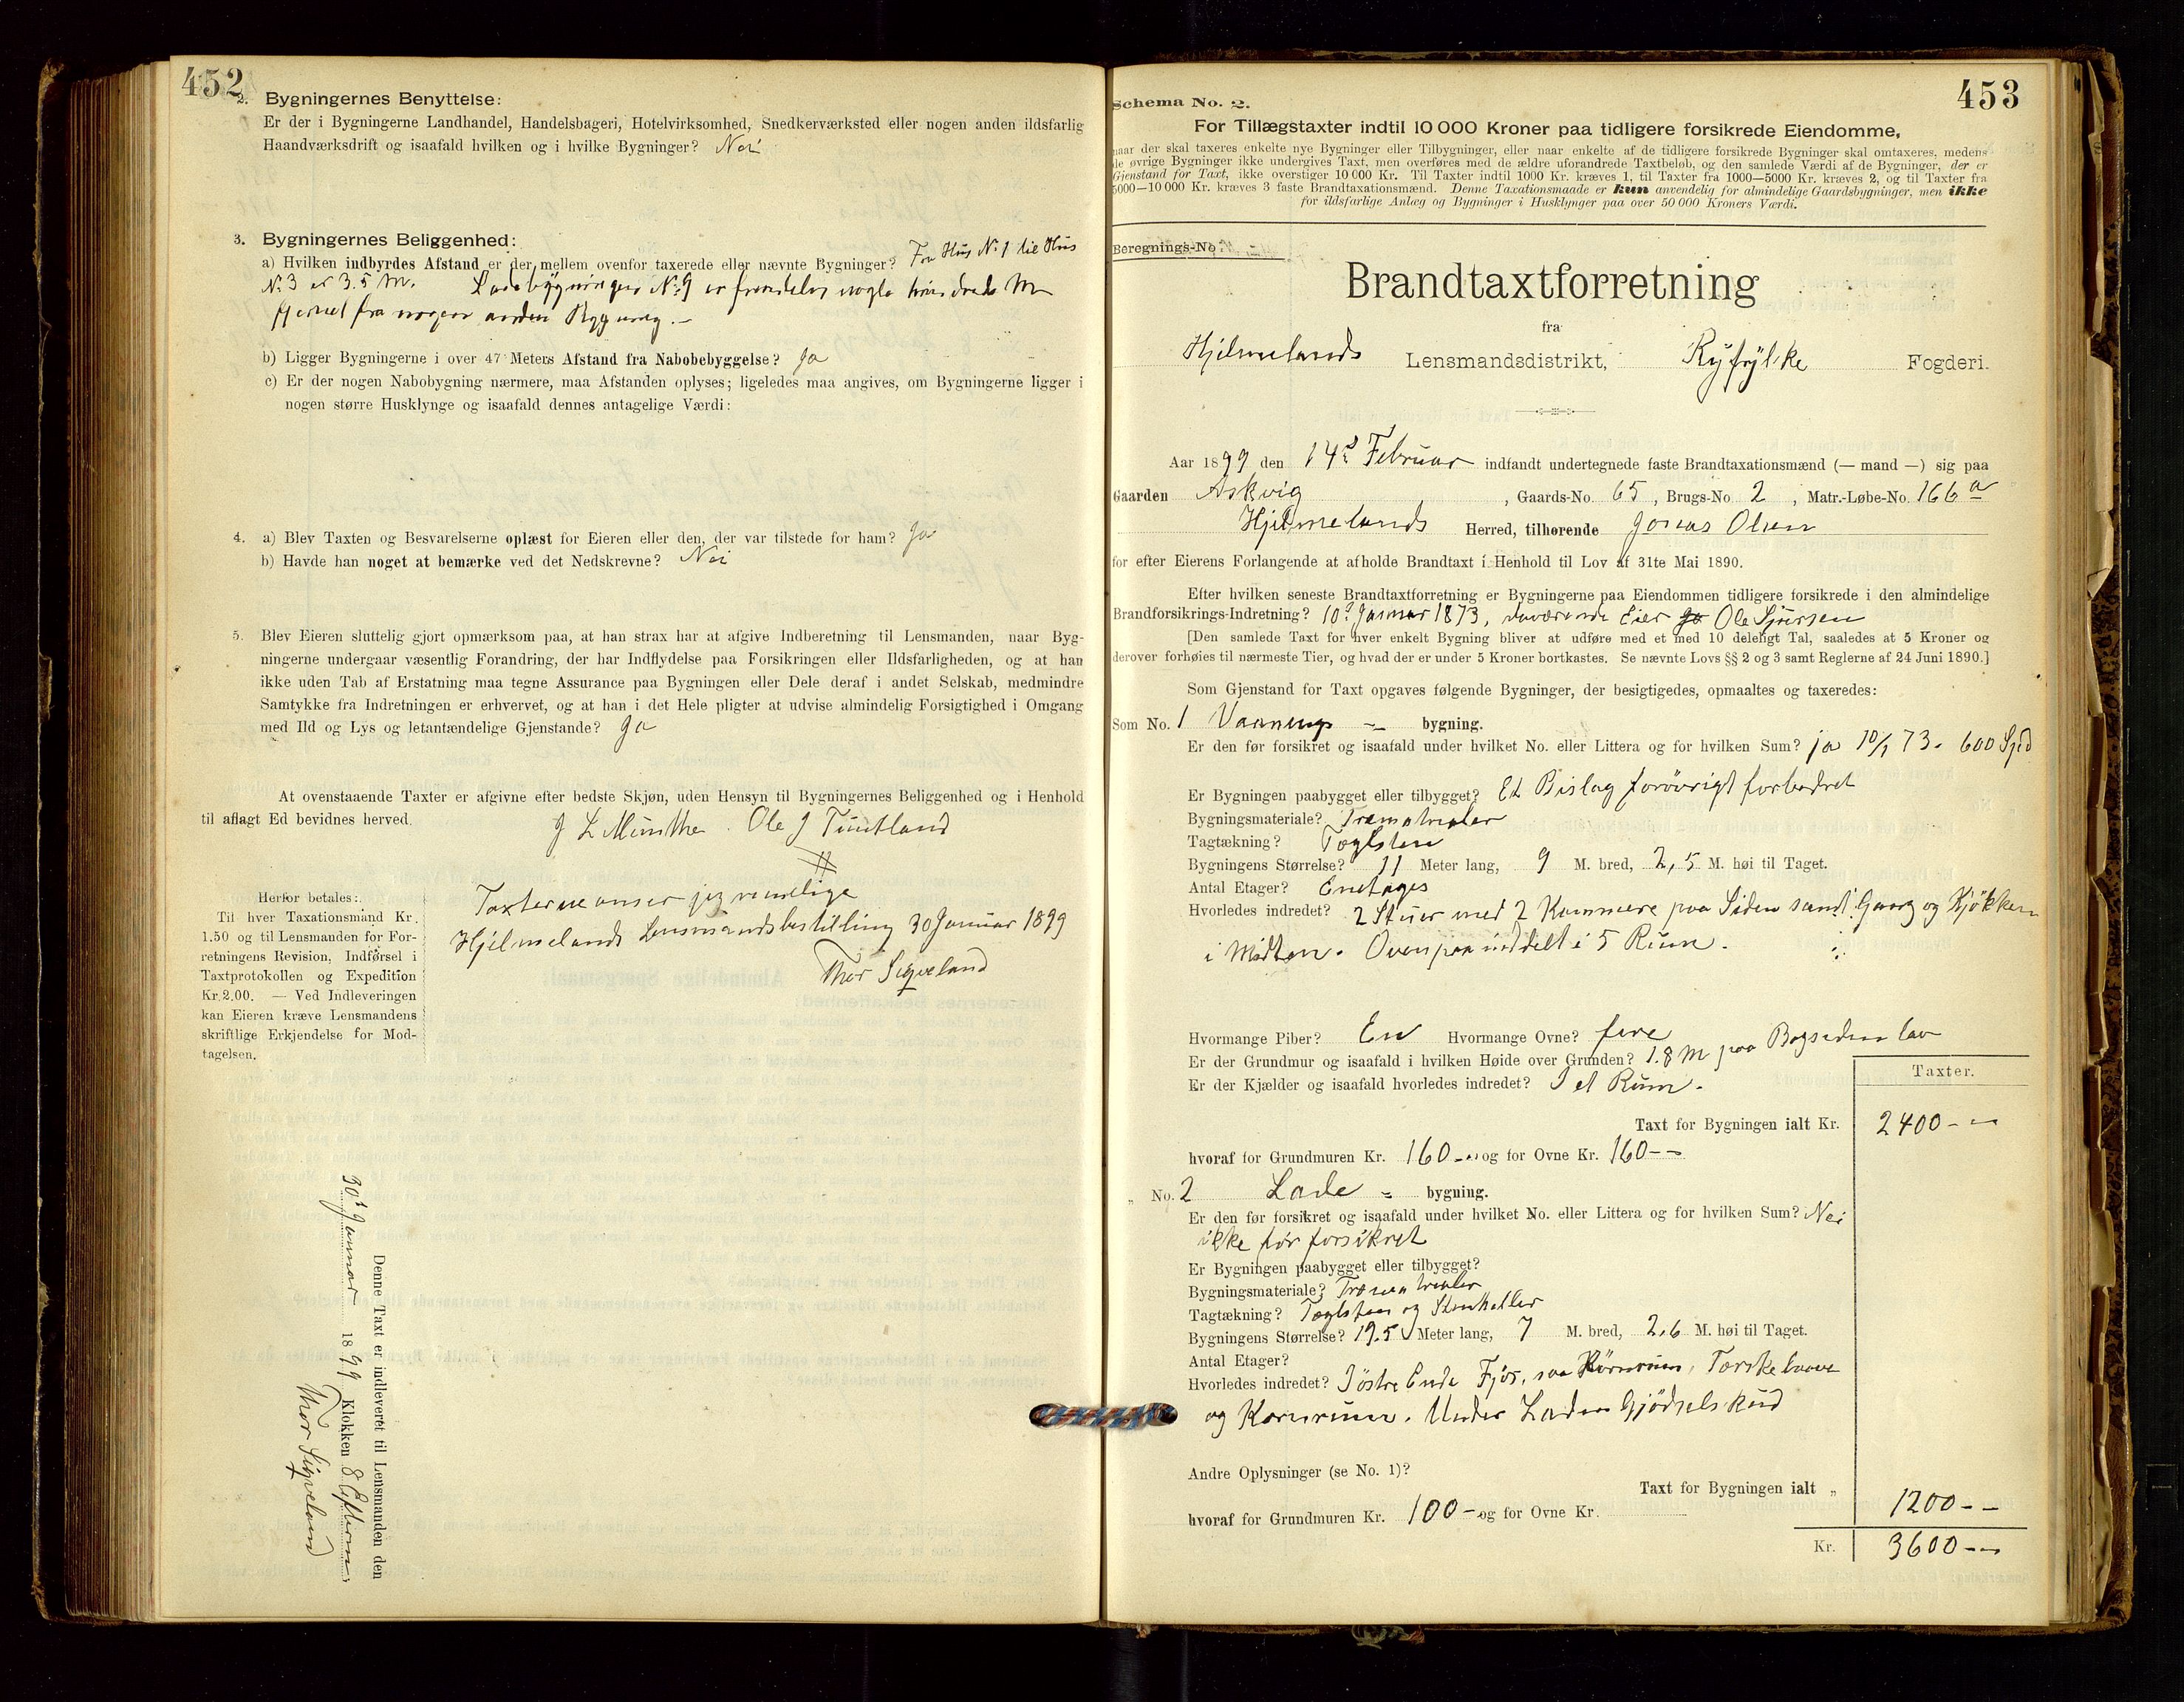 452
2. Bygningernes Benyttelse:
Er der i Bygningerne Landhandel, Handelsbageri, Hotelvirksomhed, Snedkerværksted eller nogen anden ildsfarlig
Haandværksdrift og isaafald hvilken og i hvilke Bygninger? Nei
3. Bygningernes Beliggenhed:
a) Hvilken indbyrdes Afstand er der mellem ovenfor taxerede eller nævnte Bygninger? Fra Hus No 1 til Hus
No 3 er 3.5 M. Ladebygningen No 9 er fremdeles nogle hundrede M
fjernet fra nogen anden Bygning. –
b) Ligger Bygningerne i over 47 Meters Afstand fra Nabobebyggelse? Ja
c) Er der nogen Nabobygning nærmere, maa Afstanden oplyses; ligeledes maa angives, om Bygningerne ligger i
nogen større Husklynge og isaafald dennes antagelige Værdi:
4. a) Blev Taxten og Besvarelserne oplæst for Eieren eller den, der var tilstede for ham? Ja
b) Havde han noget at bemærke ved det Nedskrevne? Nei
5. Blev Eieren sluttelig gjort opmærksom paa, at han strax har at afgive Indberetning til Lensmanden, naar Byg-
ningerne undergaar væsentlig Forandring, der har Indflydelse paa Forsikringen eller Ildsfarligheden, og at han
ikke uden Tab af Erstatning maa tegne Assurance paa Bygningen eller Dele deraf i andet Selskab, medmindre
Samtykke fra Indretningen er erhvervet, og at han i det Hele pligter at udvise almindelig Forsigtighed i Omgang
med Ild og Lys og letantændelige Gjenstande? Ja
At ovenstaaende Taxter er afgivne efter bedste Skjøn, uden Hensyn til Bygningernes Beliggenhed og i Henhold
til aflagt Ed bevidnes herved.
J L Munthe. Ole J Tuntland
Herfor betales:
Til hver Taxationsmand Kr.
1.50 og til Lensmanden for For-
retningens Revision, Indførsel i
Taxtprotokollen og Expedition
Kr. 2.00. — Ved Indleveringen
kan Eieren kræve Lensmandens
skriftlige Erkjendelse for Mod-
tagelsen.
Taxterne anser jeg rimelige
Hjelmelands Lensmandsbestilling 30 Januar 1899
Thor Sigveland
Denne Taxt er indleveret til Lensmanden den
30te Januar 1899 Klokken 8 Efterm
Thor Sigveland
453
Schema No. 2.
For Tillægstaxter indtil 10 000 Kroner paa tidligere forsikrede Eiendomme,
naar der skal taxeres enkelte nye Bygninger eller Tilbygninger, eller naar enkelte af de tidligere forsikrede Bygninger skal omtaxeres, medens
de øvrige Bygninger ikke undergives Taxt, men overføres med de ældre uforandrede Taxtbeløb, og den samlede Værdi af de Bygninger, der er
Gjenstand for Taxt, ikke overstiger 10 000 Kr. Til Taxter indtil 1000 Kr. kræves 1, til Taxter fra 1000—5000 Kr. kræves 2, og til Taxter fra
5000—10 000 Kr. kræves 3 faste Brandtaxationsmænd. Denne Taxationsmaade er kun anvendelig for almindelige Gaardsbygninger, men ikke
for ildsfarlige Anlæg og Bygninger i Husklynger paa over 50 000 Kroners Værdi.
Beregnings-No.
Brandtaxtforretning
fra
Hjelmelands Lensmandsdistrikt, Ryfylke Fogderi.
Aar 1899 den 14de Februar indfandt undertegnede faste Brandtaxationsmænd (— mand —) sig paa
Gaarden Askvig, Gaards-No. 65, Brugs-No. 2, Matr.-Løbe-No. 166a
Hjelmelands Herred, tilhørende Jonas Olsen
for efter Eierens Forlangende at afholde Brandtaxt i Henhold til Lov af 31te Mai 1890.
Efter hvilken seneste Brandtaxtforretning er Bygningerne paa Eiendommen tidligere forsikrede i den almindelige
Brandforsikrings-Indretning? 10de Januar 1873, daværende Eier Ole Sjursen
[Den samlede Taxt for hver enkelt Bygning bliver at udføre med et med 10 deleligt Tal, saaledes at 5 Kroner og
derover forhøies til nærmeste Tier, og hvad der er under 5 Kroner bortkastes. Se nævnte Lovs §§ 2 og 3 samt Reglerne af 24 Juni 1890.]
Som Gjenstand for Taxt opgaves følgende Bygninger, der besigtigedes, opmaaltes og taxeredes:
Som No. 1 Vaanings – bygning.
Er den før forsikret og isaafald under hvilket No. eller Littera og for hvilken Sum? ja 10/1 73. 600 Spd
Er Bygningen paabygget eller tilbygget? Et Bislag forøvrigt forbedret
Bygningsmateriale? Træmatrialer
Tagtækning? Taglsten
Bygningens Størrelse? 11 Meter lang, 9 M. bred, 2,5 M. høi til Taget.
Antal Etager? Enetages
Hvorledes indredet? 2 Stuer med 2 Kammere paa Siden samt Gang og Kjøkken
i Midten. Ovenpaa inddelt i 5 Rum.
Hvormange Piber? En Hvormange Ovne? fire
Er der Grundmur og isaafald i hvilken Høide over Grunden? 1.8 M paa Bagsiden lav
Er der Kjælder og isaafald hvorledes indredet? I et Rum.
Taxter.
Taxt for Bygningen ialt Kr. 2400 - -
hvoraf for Grundmuren Kr. 160 - og for Ovne Kr. 160 - -
„ No. 2 Lade - bygning.
Er den før forsikret og isaafald under hvilket No. eller Littera og for hvilken Sum? Nei
ikke før forsikret
Er Bygningen paabygget eller tilbygget?
Bygningsmateriale? Træmatrialer
Tagtækning? Taglsten og Stenheller
Bygningens Størrelse? 19.5 Meter lang, 7 M. bred, 2.6 M. høi til Taget.
Antal Etager?
Hvorledes indredet? I østre Ende Fjøs, saa Hørum, Tærskelaave
og Kornrum. Under Laden Gjødselskud
Andre Oplysninger (se No. 1)?
Taxt for Bygningen ialt „ 1200 - -
hvoraf for Grundmuren Kr. 100 - og for Ovne Kr.
Kr. 3600 - -